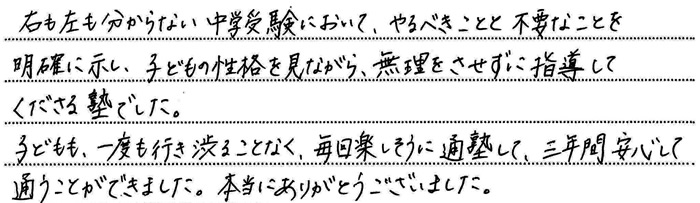 右も左も分からない中学受験において、やるべきことと不要なことを
明確に示し、子どもの性格を見ながら、無理をさせずに指導して
くださる塾でした。
子どもも、一度も行き渋ることなく、毎日楽しそうに通塾して、三年間安心して
通うことができました。本当にありがとうございました。